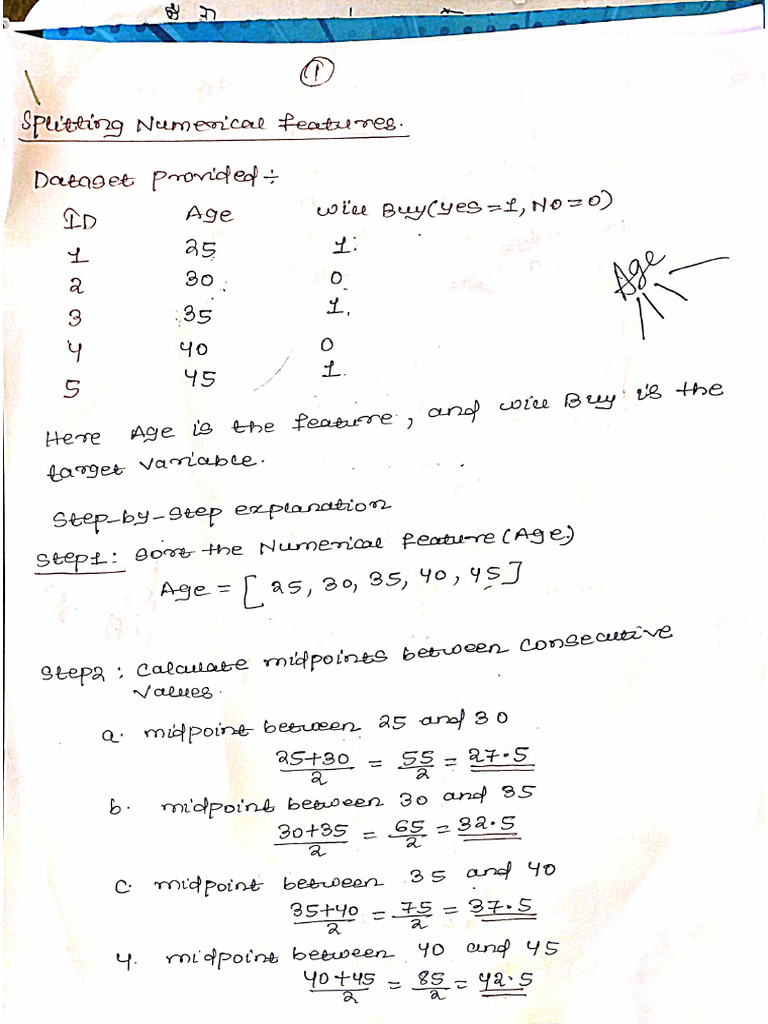 ①
Splitting Numerical features.
Dataset provided ÷
ID Age Will Buy (Yes = 1, NO = 0)
1 25 1
2 30 0
3 35 1
4 40 0
5 45 1
Age
Here Age is the feature, and will Buy is the
target variable.
Step-by-step explanation
Step1: Sort the Numerical feature (Age)
Age = [25, 30, 35, 40, 45]
Step2: Calculate midpoints between consecutive
values.
a. midpoint between 25 and 30
25+30/2 = 55/2 = 27.5
b. midpoint between 30 and 35
30+35/2 = 65/2 = 32.5
c. midpoint between 35 and 40
35+40/2 = 75/2 = 37.5
4. midpoint between 40 and 45
40+45/2 = 85/2 = 42.5